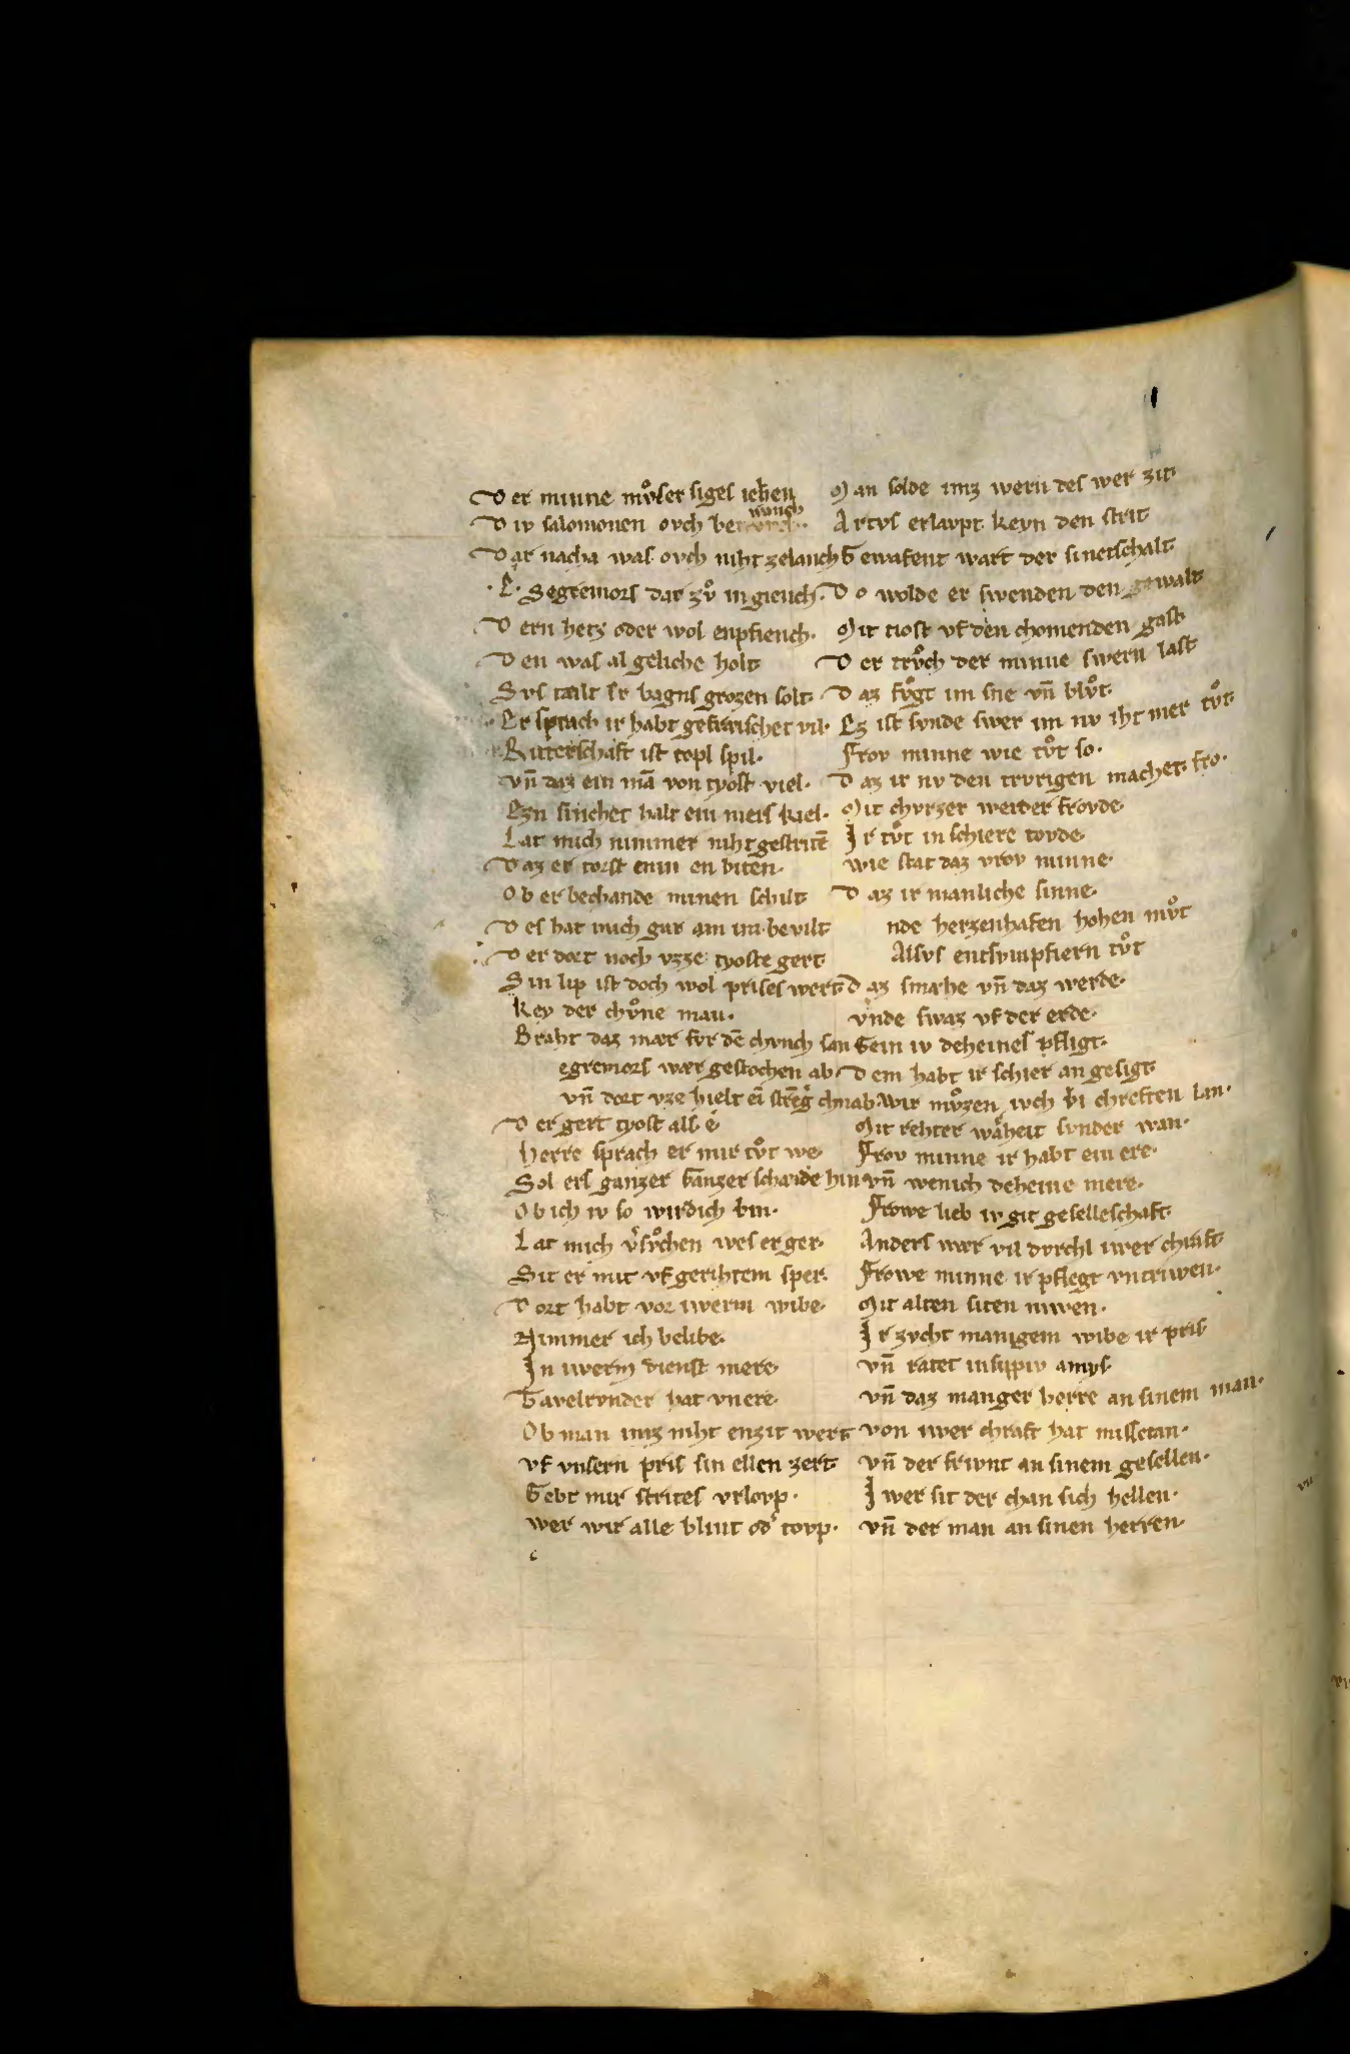 Der minne mvͦser siges iehen
Div salomonen ovch betwanch
Dar nacha was ovch niht zelanch
E Segremors dar zvͦ in giench.
Dern hetz oder wol enpfiench.
Den was al geliche holt
Svs tailt sr bagens grozen solt.
Er sprach ir habt gefraischet vil.
Ritterschaft ist topl spil.
vn̄ daz ein mā von tyost viel.
Ezn sinchet halt ein mers kiel.
Lat mich nimmer niht gestritē
Daz er torst emin en biten.
Ob er bechande minen schilt
Des hat mich gar am im bevilt
Der dort noch vzze tyoste gert
Sin lip ist doch wol prises wert
Key der chvͦne man.
Braht daz mær fvr dē chvnch san
egremors wær gestochen ab
vn̄ dort vze hielt eī strēg' chnab.
Der gert tyost als e
herre sprach er mir tvͦt we
Sol ers ganzer kanzer schaide hin
Ob ich iv so wirdich bin.
Lat mich v'svͦchen wes er ger.
Sit er mit vf gerihtem sper.
Dort habt vor iwerm wibe.
Nimmer ich belibe.
In iwerm dienst mere
Tavelrvnder hat vnere.
Ob man imz niht enzit wert
vf vnsern pris sin ellen zert
Gebt mir strites vrlovp.
wer wir alle blint od' tovp.
Man solde imz wern des wer zit
Artvs erlavpt keyn den strit
Gewafent wart der sinetschalt
Do wolde er swenden den gewalt
Mit tiost vf den chomenden gast
Der trvͦch der minne swern last
Daz fvͦgt im sne vn̄ blvͦt.
Ez ist svnde swer im nv iht mer tvͦt.
Frov minne wie tvͦt so.
Daz ir nv den trvrigen machet fro.
Mit chvrzer werder frovde
Ir tvͦt in schiere tovde
wie stat daz vrov minne.
Daz ir manliche sinne.
nde herzenhafen hohen mvͦt
Alsvs entsvmpfiern tvͦt
Daz smæhe vn̄ daz werde.
vnde swaz vf der erde.
Gein iv deheines pfligt.
Dem habt ir schier an gesigt
wir mvͦzen ivch bi chreften lan.
Mit rehter wæheit svnder wan.
Frov minne ir habt ein ere.
vn̄ wenich deheine mere.
Frowe lieb iv git geselleschaft.
Anders wær vil dvrchl iwer chraft
Frowe minne ir pflegt vntriwen.
Mit alten siten niwen.
Ir zvcht manigem wibe ir pris
vn̄ ratet in sippiv amys.
vn̄ daz manger herre an sinem man.
von iwer chraft hat missetan.
vn̄ der frivnt an sinem gesellen.
Iwer sit der chan sich hellen.
vn̄ der man an sinen herren.